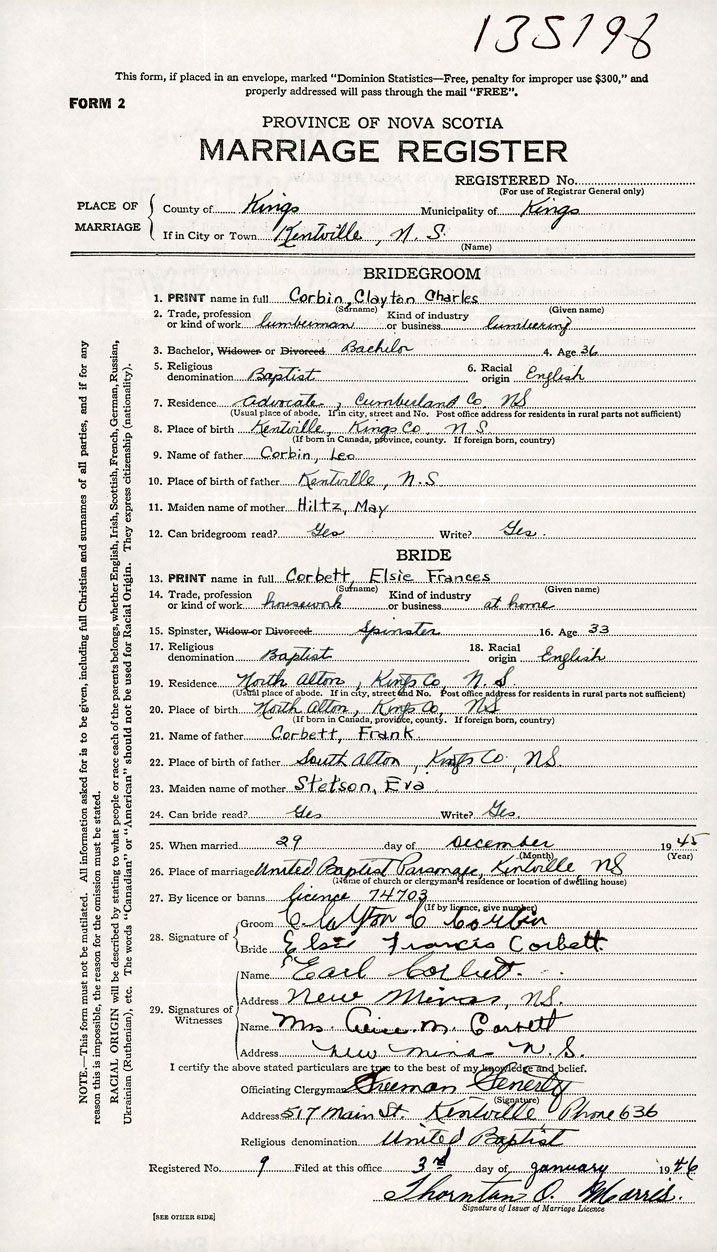 135198
This form, if placed in an envelope, marked "Dominion Statistics—Free, penalty for improper use $300," and
properly addressed will pass through the mail "FREE".
FORM 2
PROVINCE OF NOVA SCOTIA
MARRIAGE REGISTER
REGISTERED No.
(For use of Registrar General only)
PLACE OF MARRIAGE
County of Kings Municipality of Kings
If in City or Town Kentville, N. S.
(Name)
BRIDEGROOM
1. PRINT name in full Corbin, Clayton Charles
(Surname) (Given name)
2. Trade, profession or kind of work lumberman Kind of industry or business lumbering
3. Bachelor, Widower or Divorced Bachelor 4. Age 36
5. Religious denomination Baptist 6. Racial origin English
7. Residence Advocate, Cumberland Co NS
(Usual place of abode. If in city, street and No. Post office address for residents in rural parts not sufficient)
8. Place of birth Kentville, Kings Co N. S.
(If born in Canada, province, county. If foreign born, country)
9. Name of father Corbin, Leo
10. Place of birth of father Kentville, N.S
11. Maiden name of mother Hiltz, May
12. Can bridegroom read? Yes Write? Yes.
BRIDE
13. PRINT name in full Corbett, Elsie Frances
(Surname) (Given name)
14. Trade, profession or kind of work housework Kind of industry or business at home
15. Spinster, Widow or Divorced Spinster 16. Age 33
17. Religious denomination Baptist 18. Racial origin English
19. Residence North Alton, Kings Co N. S
(Usual place of abode. If in city, street and No. Post office address for residents in rural parts not sufficient)
20. Place of birth North Alton, Kings Co, NS
(If born in Canada, province, county. If foreign born, country)
21. Name of father Corbett, Frank
22. Place of birth of father South Alton, Kings Co., NS.
23. Maiden name of mother Stetson, Eva
24. Can bride read? Yes Write? Yes.
25. When married 29 day of December 1945
(Month) (Year)
26. Place of marriage United Baptist Parsonage, Kentville, NS
(Name of church or clergyman's residence or location of dwelling house)
27. By licence or banns licence 74703
(If by licence, give number)
28. Signature of
Groom Clayton C Corbin
Bride Elsie Francis Corbett.
29. Signatures of Witnesses
Name Earl Corbett.
Address New Minas, NS.
Name Mrs. M. Corbett
Address New Minas N. S.
I certify the above stated particulars are true to the best of my knowledge and belief.
Officiating Clergyman Freeman Fenerty
(Signature)
Address 517 Main St. Kentville Phone 636
Religious denomination United Baptist
Registered No. 9 Filed at this office 3rd day of January 1946
Thornton O. Morris.
Signature of Issuer of Marriage Licence
[SEE OTHER SIDE]
NOTE.—This form must not be mutilated. All information asked for is to be given, including full Christian and surnames of all parties, and if for any
reason this is impossible, the reason for the omission must be stated.
RACIAL ORIGIN will be described by stating to what people or race each of the parents belongs, whether English, Irish, Scottish, French, German, Russian,
Ukrainian (Ruthenian), etc. The words "Canadian" or "American" should not be used for Racial Origin. They express citizenship (nationality).